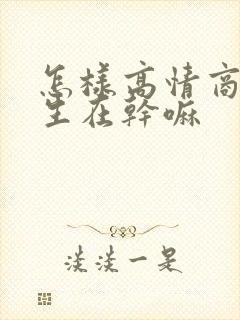 怎樣高情商
生在幹嘛
淡淡一是